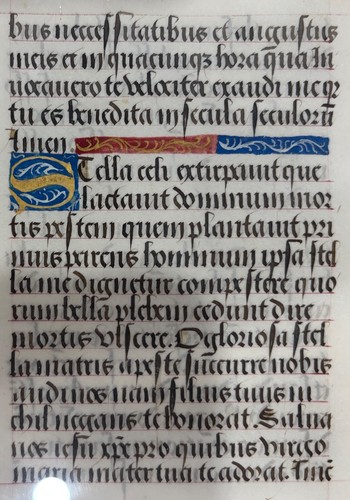 bus necessitatibus et angustiis
meis et in quacunqz hora q̄na In
uocauero te velociter exaudi me qr
tu es benedita in secula seculorū
Amen.
Stella celi extirpauit que
lactauit dominum mor
tis pestem quem plantauit pri
mus parens hominum ipsa stel
la me dignetur compestere quo
rum bella plebem cedunt dire
mortis vlscere. O gloriosa stel
la matris a peste succurre nobis
audi nos nam filius tuus ni
chil negans te honorat. Salua
nos iesu xpe pro quibus virgo
maria mater tua te adorat. Ame